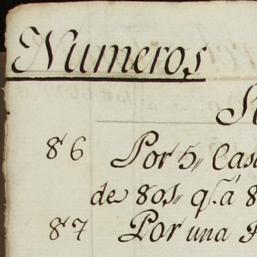 Numeros
86 Por 5,, Cas
de 80s,, q.ª á 8
87 Por una